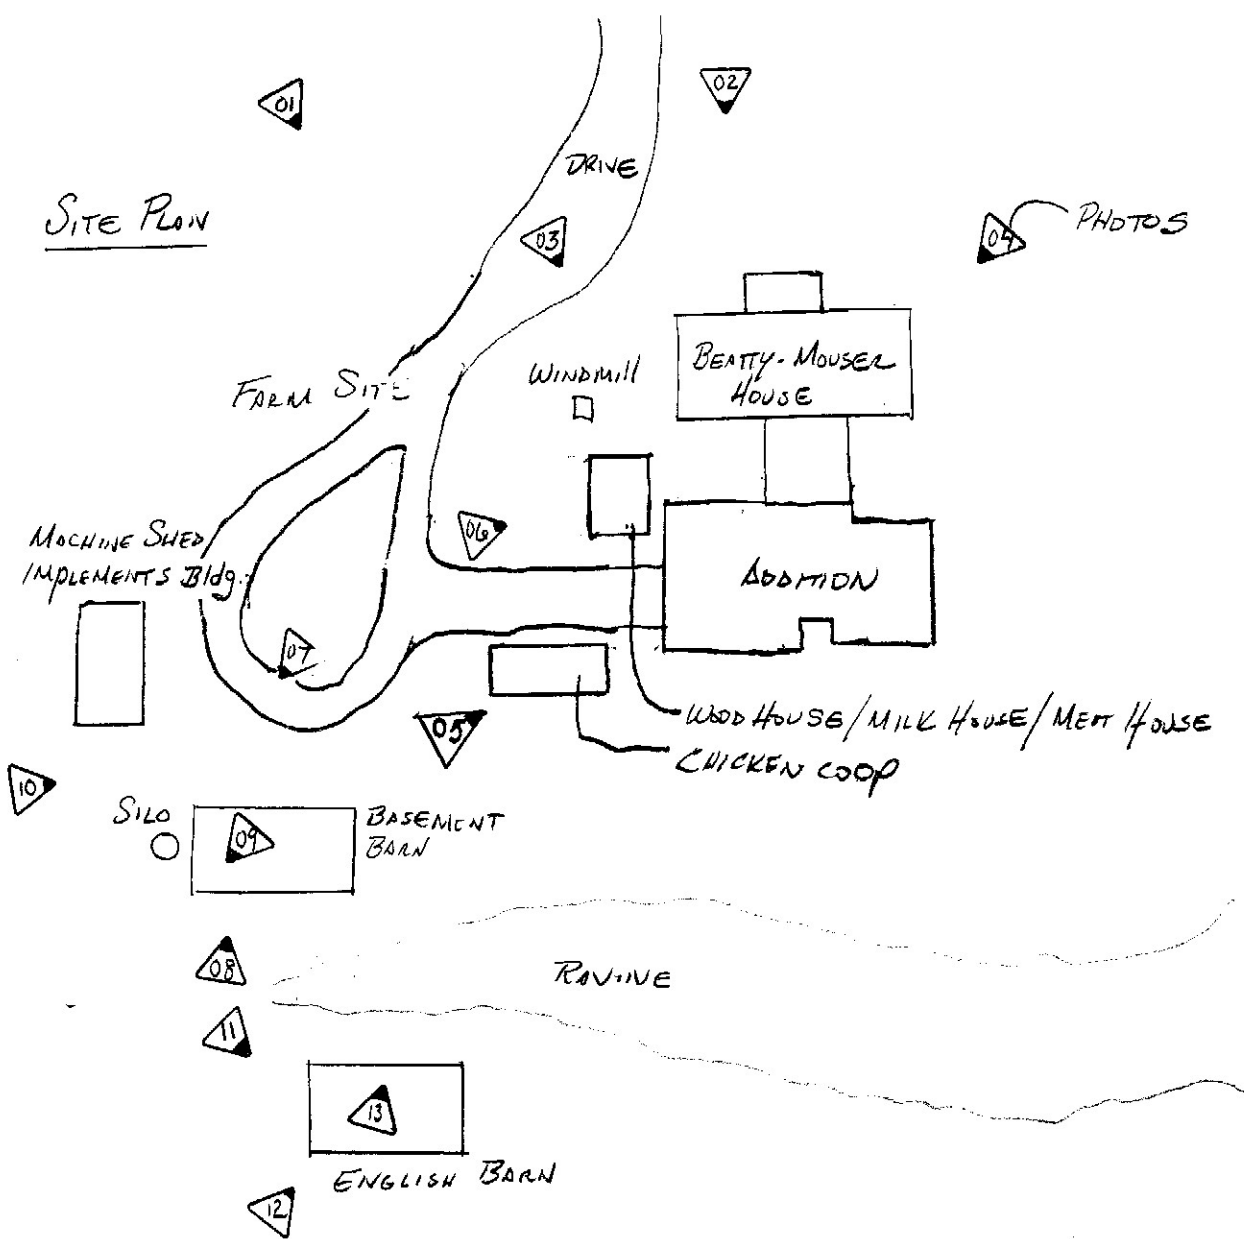 01
02
DRIVE
SITE PLAN
03
04
PHOTOS
BEATTY-MOUSER
HOUSE
WINDMILL
FARM SITE
MACHINE SHED
IMPLEMENTS Bldg.
06
ADDITION
07
05
WOOD HOUSE/MILK HOUSE/MEAT HOUSE
CHICKEN COOP
10
SILO
09
BASEMENT
BARN
08
RAVINE
11
13
ENGLISH BARN
12